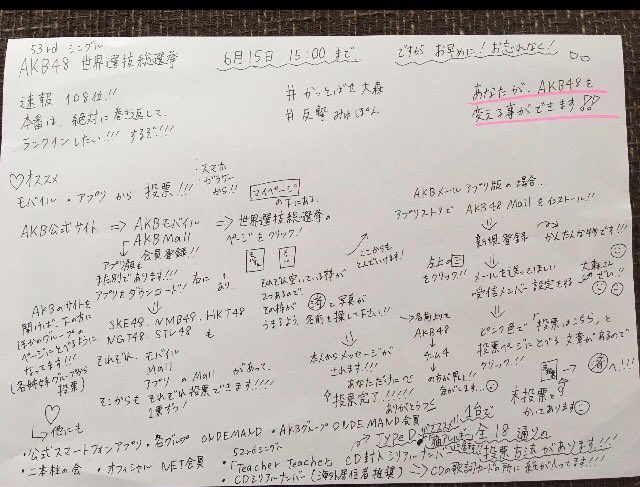 53rd シングル
AKB48 世界選抜総選挙
6月15日 15:00 まで
ですが お早めに! お忘れなく!
速報 108位!!
本番は、絶対に巻き返して、
ランクインしたい!!! するぞ!!!
# かっとばせ大森
# 反撃 みゅぽん
あなたが、AKB48を
変える事ができます!!
♡オススメ
モバイル・アプリ から 投票!!!
スマホ
ガラケー
から!!
マイページ
の下にある、
AKB公式サイト ⇒ AKBモバイル ⇒ 世界選抜総選挙の
AKB Mail
ページをクリック!
会員登録!!
アプリ版も
また別であります!!!
アプリをダウンロード
右に
あり
ここからも
とんでいます!
それぞれ空いている枠が
2つあるので
その枠が
と写真が
うまるよう 名前を探して下さい!!
AKBのサイトを
開けば、下の方に
ほかのグループの
ページにとべるように
なってます!!!
(各姉妹グループから
投票)
SKE48. NMB48. HKT48
NGT48. STU48 も
それぞれ、モバイル
Mail
アプリのMail があって、
そこからも それぞれ投票できます!!!!
1票ずつ!
名前よりで
AKB48
チーム4
の方が早い!!
気がします…
本人からメッセージが
されます!!!
あなただけにむ
投票完了!!!!!
ありがとう
AKBメールアプリ版の場合、
アプリストアで AKB48 Mail をインストール!!
新規登録
かんたんな物です!!
左上の三
をクリック!!
メールを送ってほしい
受信メンバー 設定をする
大森さん
ぜひ!!
ピンク色で「投票はこちら」と
投票ページにとべる文章があるので
クリック!!!
済 へ!!!
木投票と
かいてあります
♡
他にも
・公式スマートフォンアプリ ・各グループ ONDEMAND ・AKBグループ ONDEMAND会員
・二本柱の会 ・オフィシャル NET会員
52ndシングル
・「Teacher Teacher」CD封入シリアルナンバー
TypeDがオススメ!
1台で
全18通りの
投票方法があります!!!
・CDシリアルナンバー(海外居住者推奨) ⇒ CDの歌詞カードの所に紙が入ってます!!!